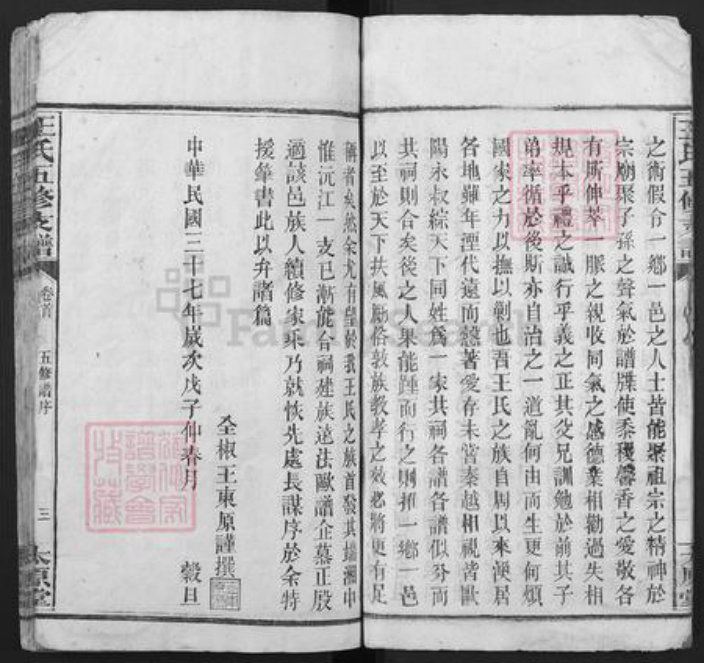 之衛假令一鄉一邑之人士皆能聚祖宗之精神於
宗廟聚子孫之聲氣於譜牒使黍稷馨香之愛敬各
有斯伸萃一脈之親收同氣之感德業相勸過失相
規本乎禮之誠行乎義之正其父兄訓勉於前其子
弟率循於後斯亦自治之一道亂何由而生更何煩
國家之力以撫以剿也吾王氏之族自周以來淏居
各地雖年湮代遠而愁著愛存未嘗秦越相視皆與
陽永叔綜天下同姓爲一家共祠各譜各譜似分而
共祠則合矣後之人果能踵而行之則推一鄉一邑
以至於天下扶風勵俗敦族教孝之效必將更有足
稱者矣然余尤有望於我王氏之族首發其端湘中
惟沅江一支已漸能合祠建族遠法歐譜企慕正殷
適談邑族人續修家乘乃就恢先處長謀序於余特
援筆書此以弁諸篇
中華民國三十七年歲次戊子仲春月 穀旦
全椒王東原謹撰
王氏五修支譜
卷首 五修譜序
三
太原堂